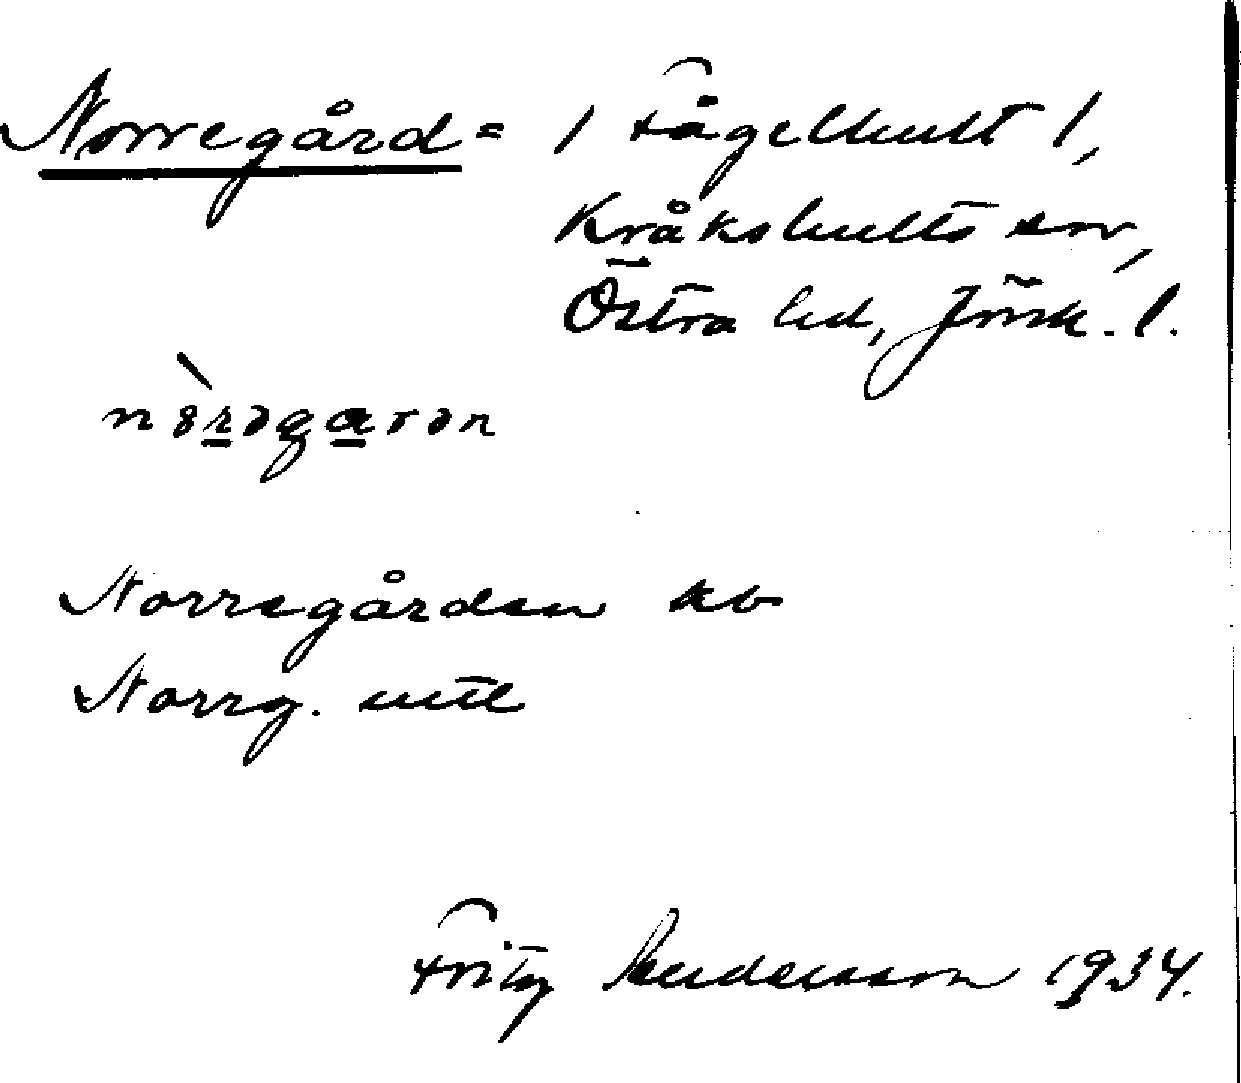 Norregård = / Fågelhult 1,
Kråkshults sn,
Östra hd, Jönk. l.
nòrəgarən
Norregården kb
Norrg. uttl
Fritz Andersson 1934.